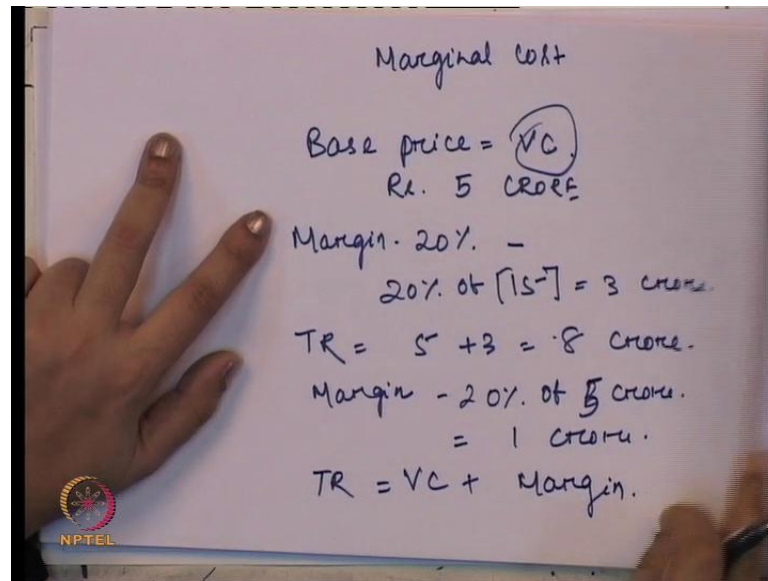 Marginal cost
Base price = VC.
Re. 5 CRORE
Margin - 20% -
20% of [15] = 3 crore.
TR = 5 + 3 = 8 crore.
Margin - 20% of 5 crore.
= 1 crore.
TR = VC + Margin.
NPTEL